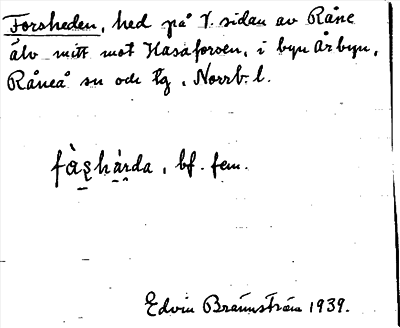 Forsheden, hed på V. sidan av Råne
älv mitt mot Hasaforsen, i byn Årbyn,
Råneå sn och tg, Norrb. l.
fàs̱hàṟda, bf. fem.
Edvin Brännström 1939.